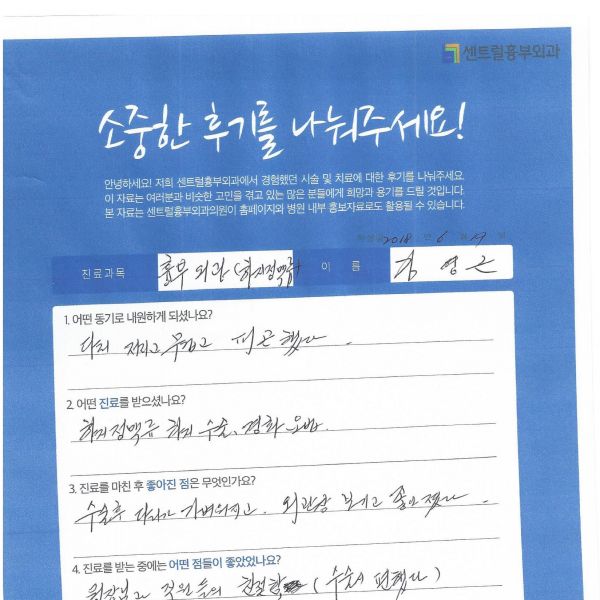 센트럴흉부외과
소중한 후기를 나눠주세요!
안녕하세요! 저희 센트럴흉부외과에서 경험했던 시술 및 치료에 대한 후기를 나눠주세요.
이 자료는 여러분과 비슷한 고민을 겪고 있는 많은 분들에게 희망과 용기를 드릴 것입니다.
본 자료는 센트럴흉부외과의원이 홈페이지와 병원 내부 홍보자료로도 활용될 수 있습니다.
2018 년 6 월 일
진료과목 흉부외과 (하지정맥류) 이 름 김영근
1. 어떤 동기로 내원하게 되셨나요?
다리 저리고 무겁고 피곤했다.
2. 어떤 진료를 받으셨나요?
하지정맥류 하지 수술, 경화요법
3. 진료를 마친 후 좋아진 점은 무엇인가요?
수술후 다리가 가벼워지고, 외관상 보기도 좋아졌다.
4. 진료를 받는 중에는 어떤 점들이 좋았었나요?
원장님과 직원들의 친절함 (수술시 편했다)